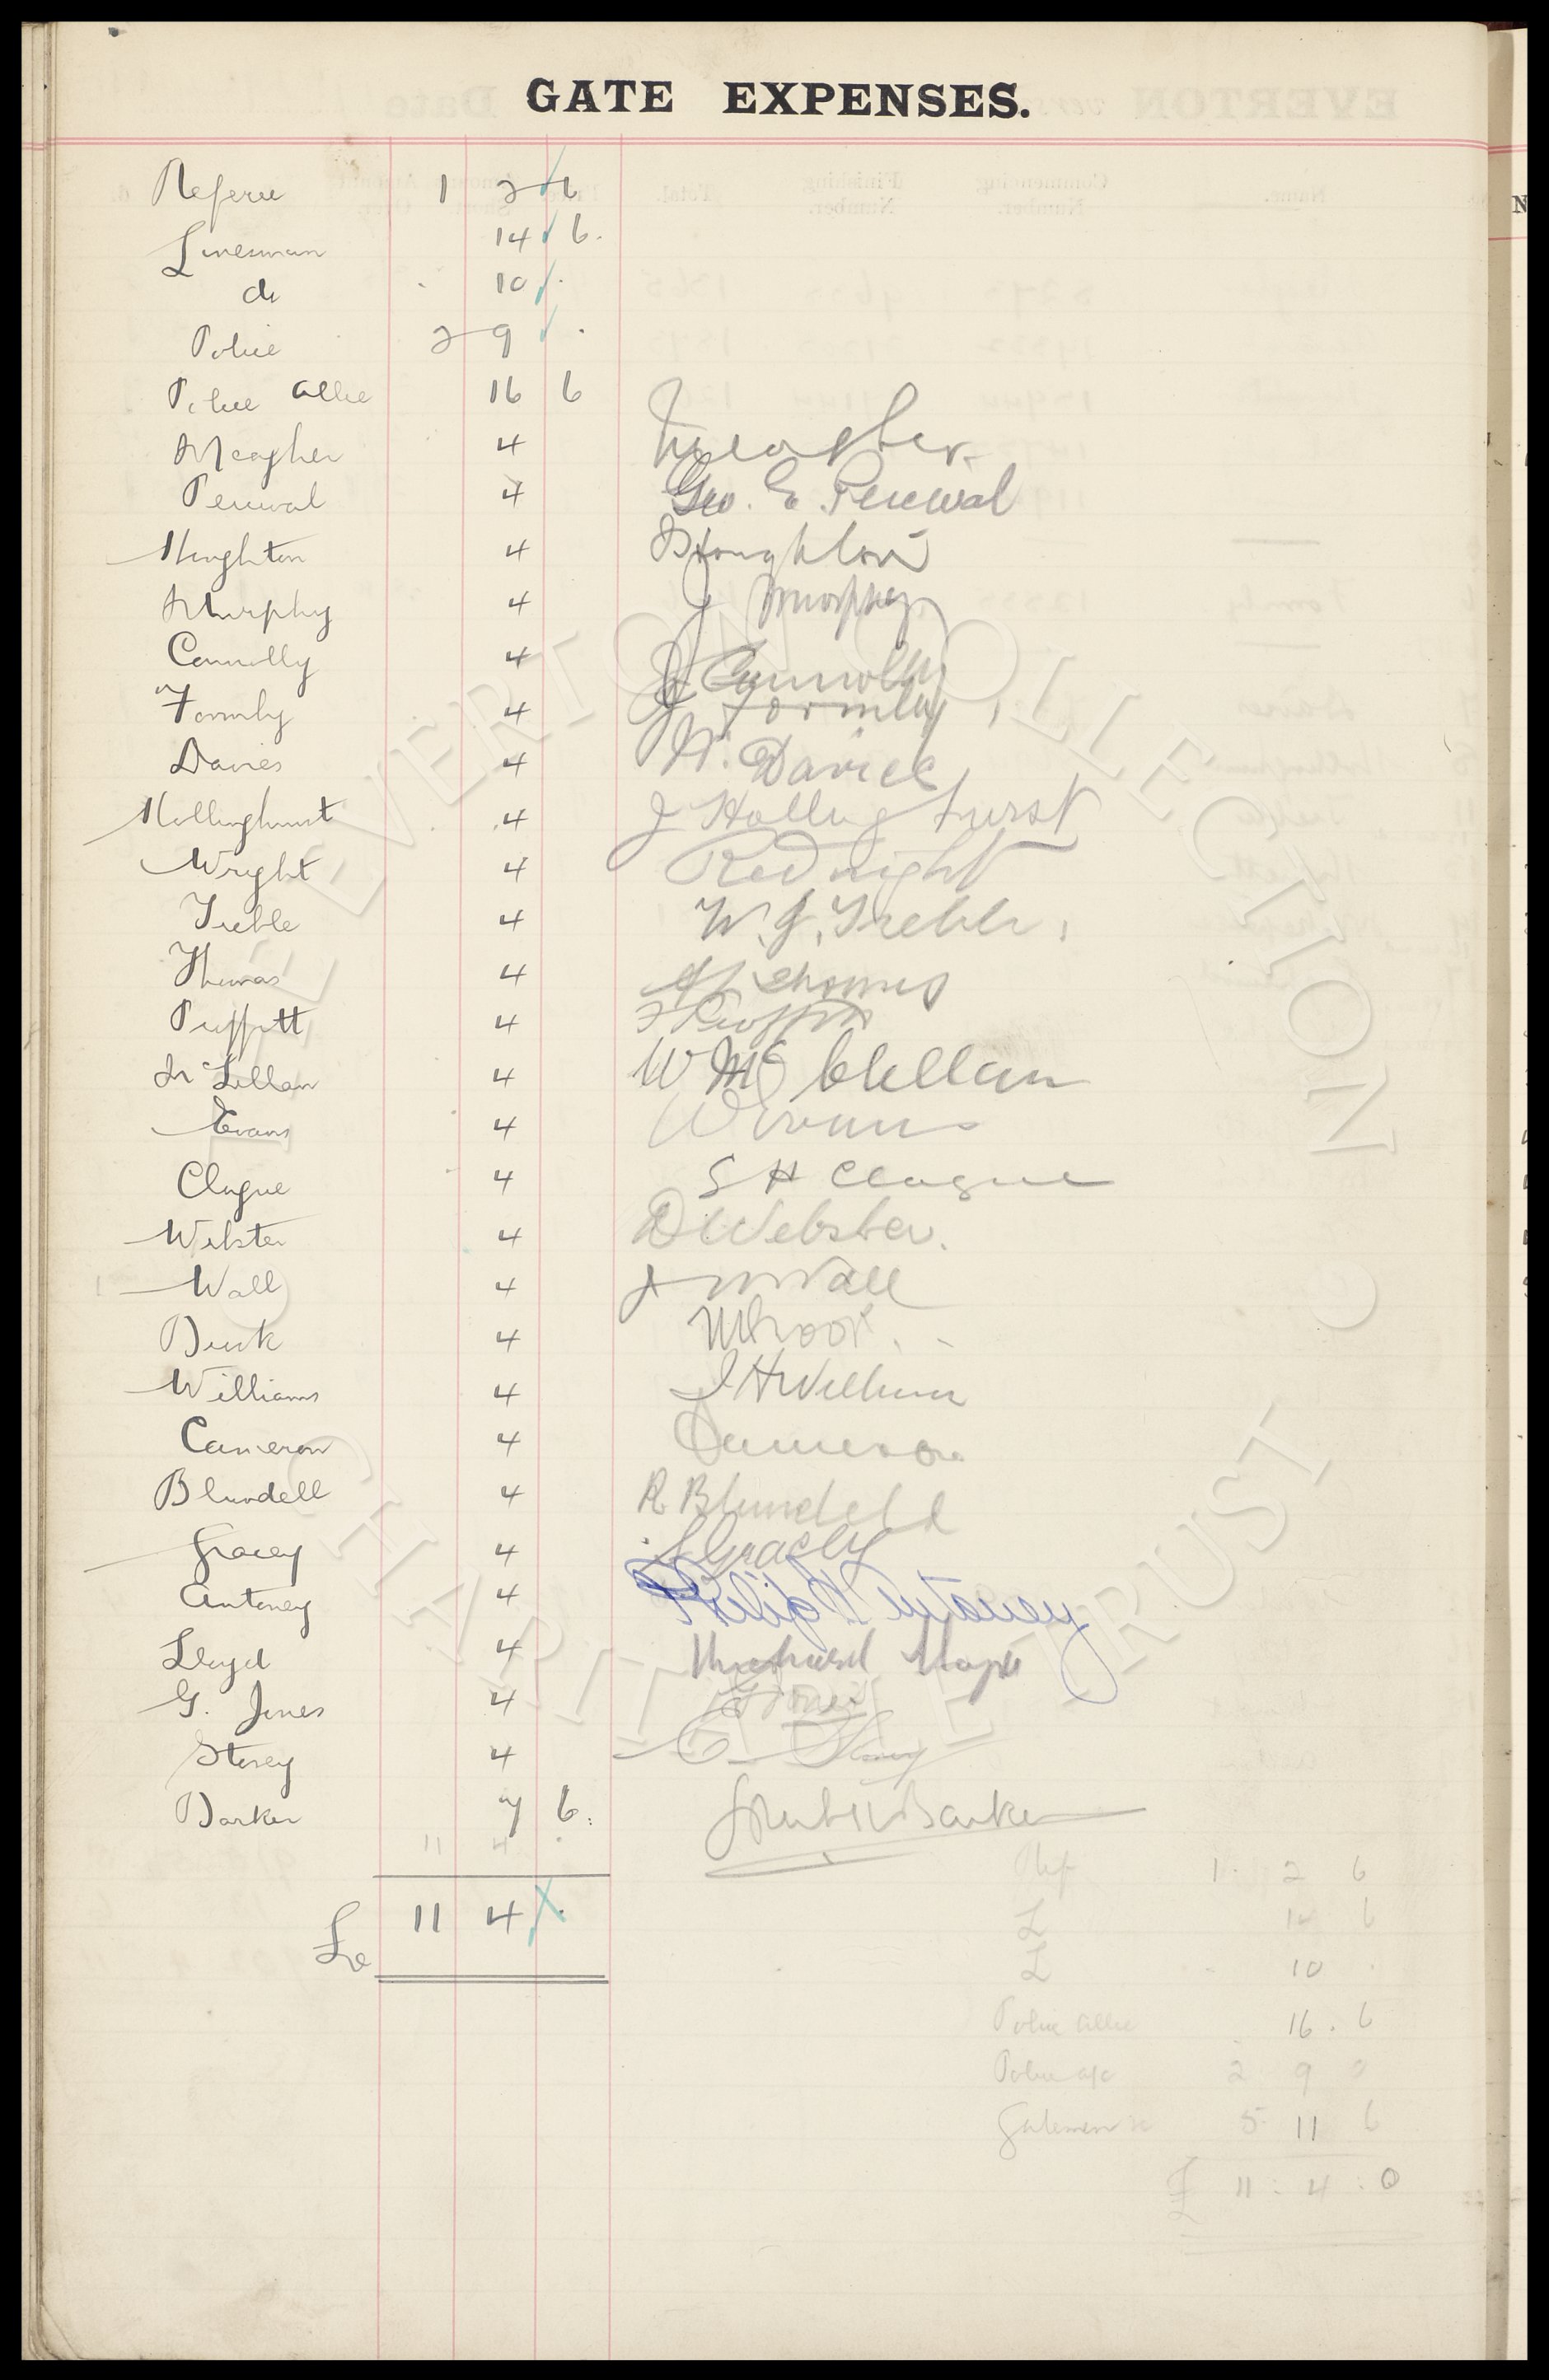 GATE EXPENSES.
Referee 1 2 6
Linesman 14 6.
do 10 .
Police 2 9 .
Police Allce 16 6
Meagher 4 Meagher
Percival 4 Geo. E. Percival
Houghton 4 Houghton
Murphy 4 J Murphy
Connolly 4 J Connolly
Formby 4 J Formby
Davies 4 W. Davies
Hollinghurst 4 J Hollinghurst
Wright 4
Treble 4 W. J. Treble.
Thomas 4 Thomas
Puffett 4
McLellan 4 W Mc Clellan
Evans 4 W Evans
Clague 4 S H Clague
Webster 4 D Webster.
Wall 4 Wall
4
Williams 4 J H Williams
Cameron 4 Cameron
Blundell 4 R Blundell
Gracey 4 Gracey
Antoney 4 Philip W Antoney
Lloyd 4
G. Jones 4 G Jones
Storey 4 E Storey
Barker 7 6. Barker
11 4 .
£ 11 4 .
Ref 1. 2 6
L 14 6
L 10 .
Police Allce 16. 6
Police a/c 2 9 0
Gatemen 5 11 6
£ 11 : 4 : 0
EVERTON COLLECTION CHARITABLE TRUST